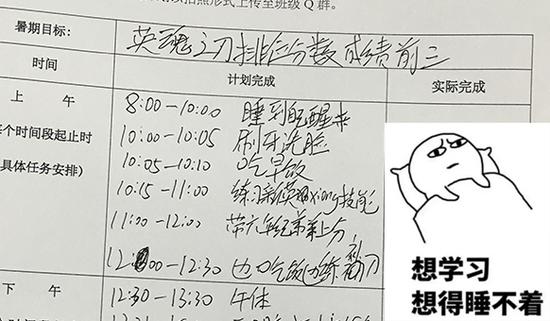 以拍照形式上传至班级Q群。
暑期目标:
英魂之刃排位分数成绩前三
时间
计划完成
实际完成
上 午
个时间段起止时
具体任务安排)
8:00—10:00 睡到自然醒来
10:00—10:05 刷牙洗脸
10:05—10:10 吃早饭
10:15—11:00 练习新英雄xiong技能
11:00—12:00 带六年级弟弟上分
12:00—12:30 边吃饭边练补刀
下 午
12:30—13:30 午休
想学习
想得睡不着